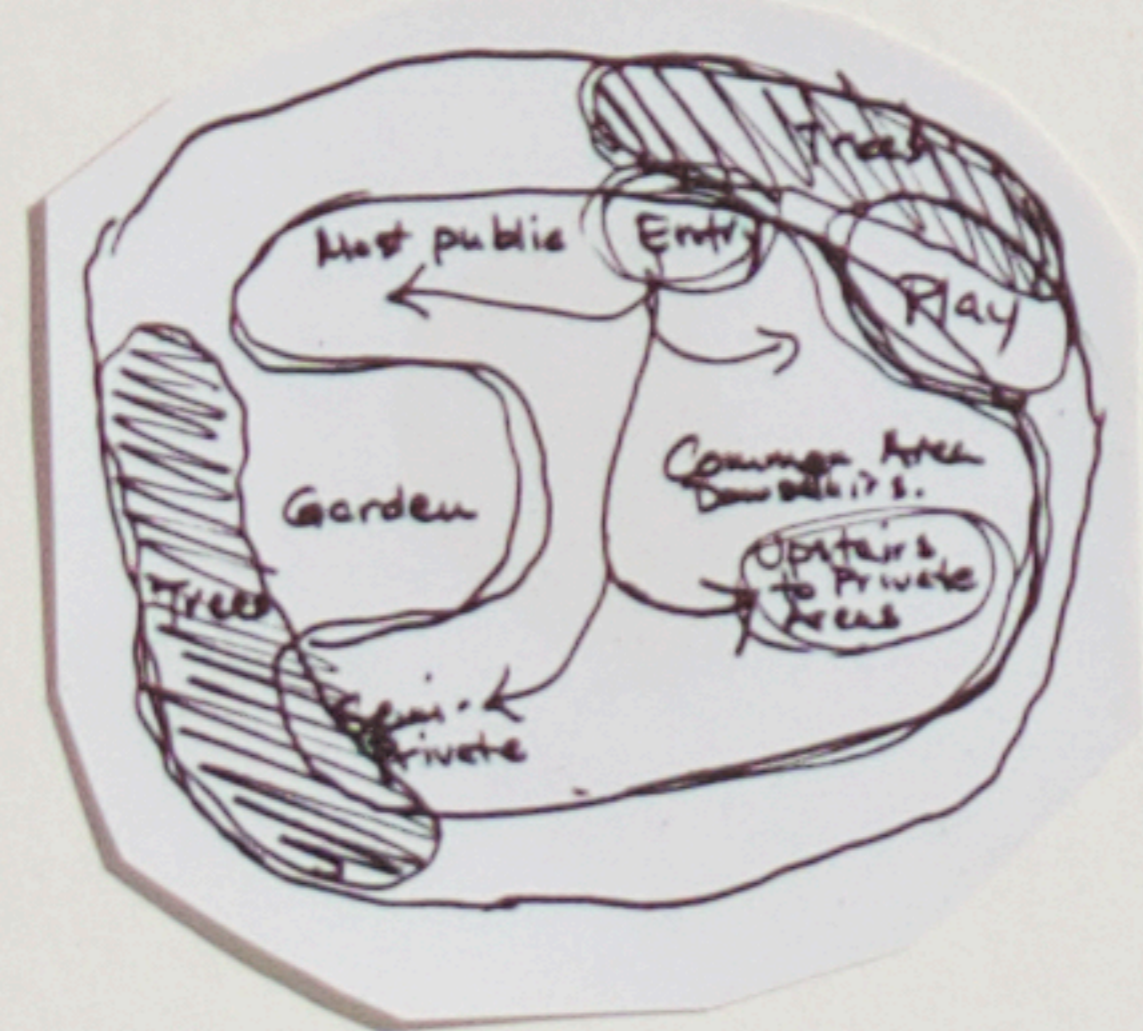 Trees
Most public
Entry
Play
Common Area
Downstairs.
Garden
Upstairs
to Private
Areas
Trees
Semi-
Private